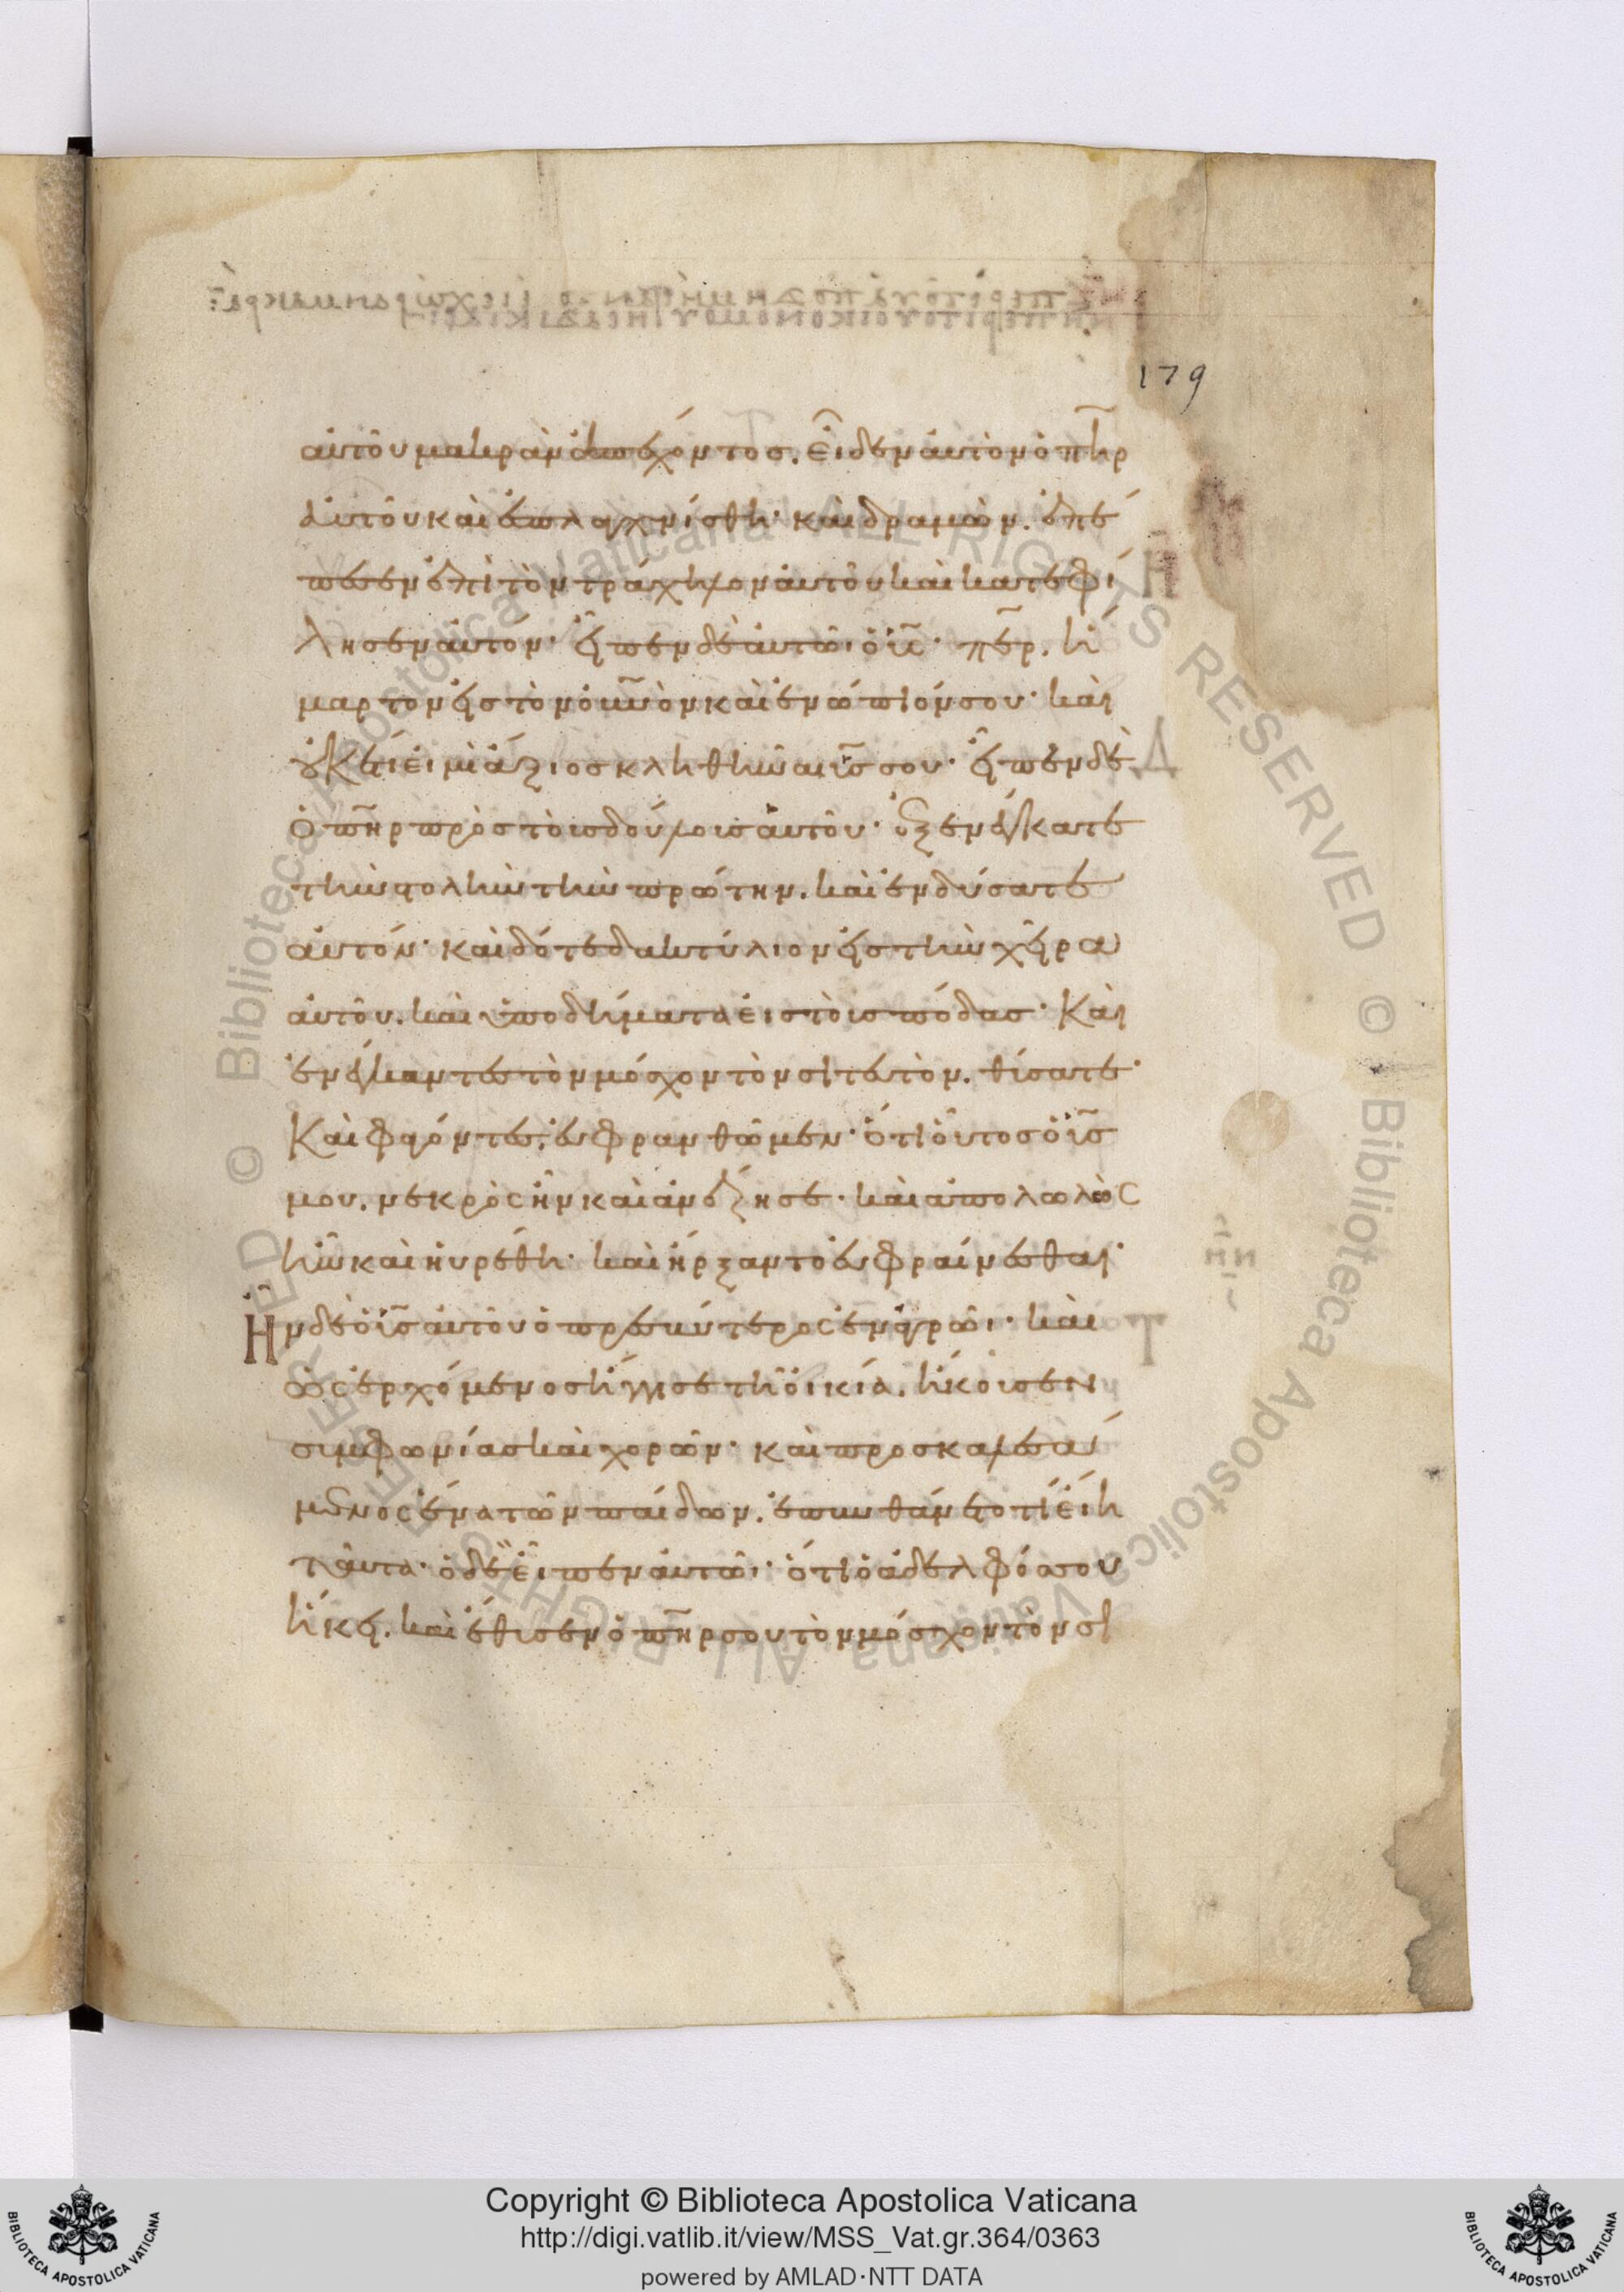 179
αὐτοῦ μακρὰν ἀπέχοντοσ. εἶδεν αὐτὸν ὁ πη̅ρ
αὐτοῦ καὶ ἐσπλαγχνίσθη· καὶ δραμὼν. ἐπέ
πεσεν ἐπὶ τὸν τράχηλον αὐτοῦ καὶ κατεφί
λησεν αὐτόν· εἶπεν δὲ αὐτῶ ὁ ϊ̅σ· πε̅ρ. ἥ
μαρτον εἰς τὸν οὐ̅νὸν καὶ ἐνώπιόν σου· καὶ
οὐκέτι εἰμὶ ἄξιοσ κληθῆναι ϊ̅σ σου· εἶπεν δὲ
ὁ πη̅ρ πρὸσ τοὺσ δούλουσ αὐτοῦ· ἐξενέγκατε
τὴν στολὴν τὴν πρώτην. καὶ ἐνδύσατε
αὐτόν· καὶ δότε δακτύλιον εἰς τὴν χεῖρα
αὐτοῦ. καὶ ὑποδήματα εἰσ τοὺσ πόδασ· Καὶ
ἐνέγκαντεσ τὸν μόσχον τὸν σιτευτὸν. θύσατε·
Καὶ φαγόντεσ. εὐφρανθῶμεν· ὅτι οὗτοσ ὁ ϊ̅σ
μου. νεκρὸς ἦν καὶ ἀνέζησε. καὶ ἀπολωλὼς
ἦν καὶ ηὑρέθη· καὶ ἤρξαντο εὐφραίνεσθαι·
Ἦν δὲ ὁ ϊ̅σ αὐτοῦ ὁ πρεσβύτερος ἐν ἀγρῶι· καὶ
ὡς ἐρχόμενοσ ἤγγισε τῆ οἰκία. ἤκουσεν
συμφωνίασ καὶ χορῶν· καὶ προσκαλεσά
μενος ἕνα τῶν παίδων. ἐπυνθάνετο τί εἴη
ταῦτα· ὁ δὲ εἶπεν αὐτῶι· ὅτι ὁ ἀδελφόσ σου
ἥκει. καὶ ἔθυσεν ὁ πη̅ρ σου τὸν μόσχον τὸν σι
© Biblioteca Apostolica Vaticana ALL RIGHTS RESERVED
Copyright © Biblioteca Apostolica Vaticana
http://digi.vatlib.it/view/MSS_Vat.gr.364/0363
powered by AMLAD·NTT DATA
BIBLIOTECA APOSTOLICA VATICANA
BIBLIOTECA APOSTOLICA VATICANA